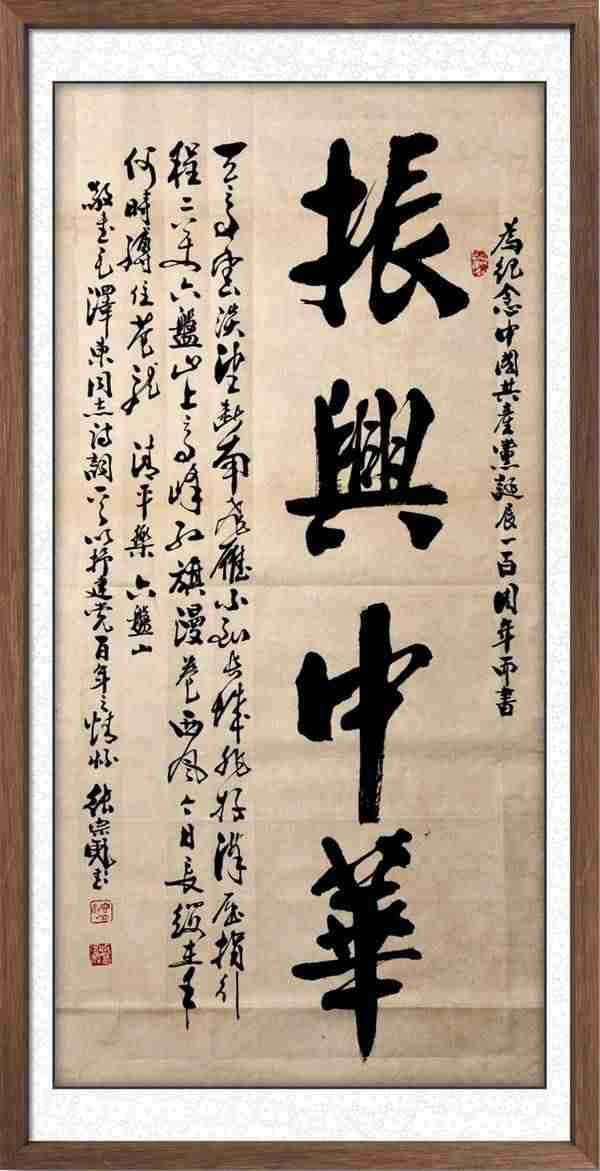 為紀念中國共產黨誕辰一百周年而書
振興中華
天高雲淡望斷南飛雁不到長城非好漢屈指行
程二万六盤山上高峰紅旗漫卷西風今日長纓在手
何時縛住蒼龍 清平樂 六盤山
敬書毛澤東同志詩詞一首以抒建党百年之情怀 張宗書